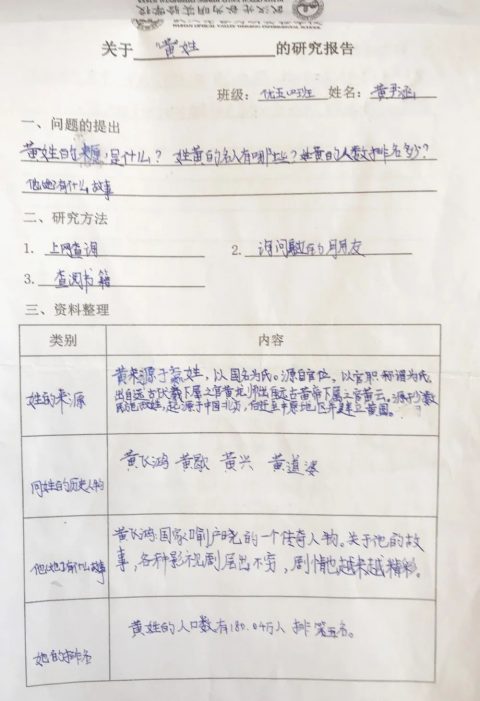 关于"黄"姓的研究报告
班级：优五四班 姓名：黄尹涵
一、问题的提出
黄姓的来源，是什么？ 姓黄的名人有哪些？姓黄的人数排名多少？
他她有什么故事
二、研究方法
1. 上网查阅 2. 询问
3. 查阅书籍
三、资料整理
类别 内容
姓的来源
黄来源于嬴姓，以国名为氏。源自官位，以官职称谓为氏
出自远古伏羲下属之官黄龙，师出自远古黄帝下属之官黄云。源于少数
同姓的历史人物
黄飞鸿 黄歇 黄兴 黄道婆
他她有什么故事
黄飞鸿国家喻户晓的一个传奇人物。关于他的故
事，各种影视剧层出不穷，剧情也越来越精彩。
她的排名
黄姓的人口数有180.04万人 排第五名。